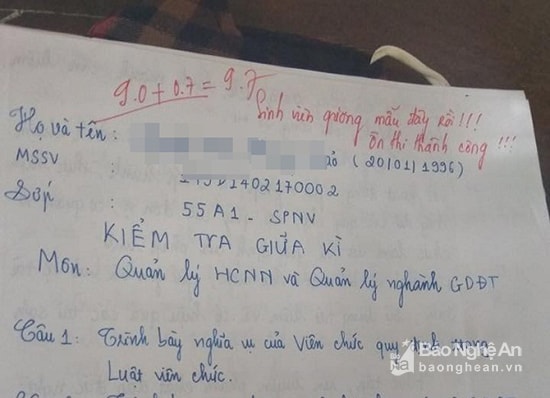 9.0 + 0.7 = 9.7
Sinh viên gương mẫu đây rồi!!!
Ôn thi thành công!!!
Họ và tên: ảo (20/01/1996)
MSSV 1402170002
Lớp 55A1 - SPNV
KIỂM TRA GIỮA KÌ
Môn: Quản lý HCNN và Quản lý nghành GDĐT
Câu 1: Trình bày nghĩa vụ của Viên chức quy định trong
Luật viên chức.
Báo Nghệ An
baonghean.vn